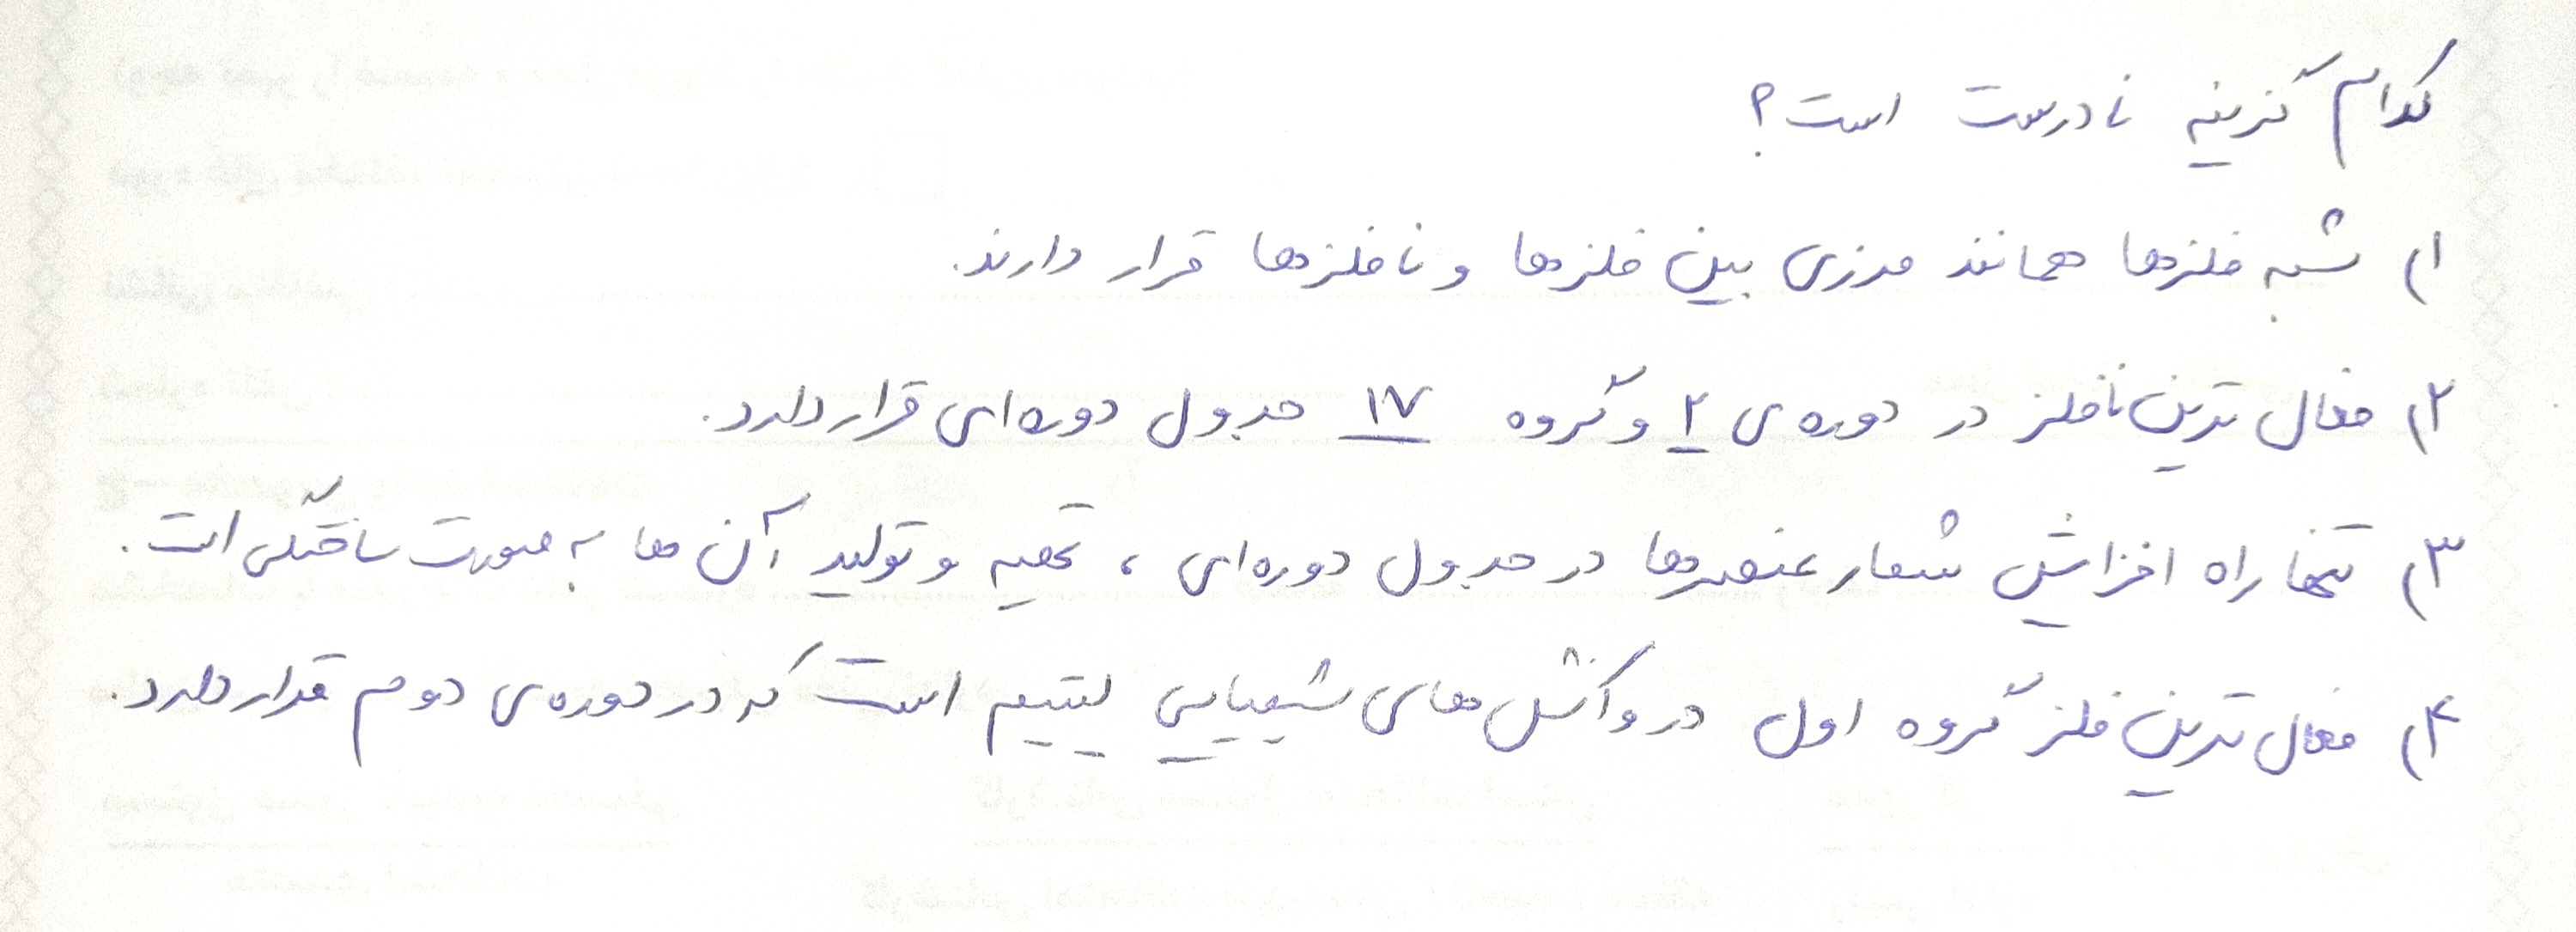 کدام گزینه نادرست است؟
۱) شبه فلزها همانند مرزی بین فلزها و نافلزها قرار دارند.
۲) فعال ترین نافلز در دوره ی ۲ و گروه ۱۷ جدول دوره ای قرار دارد.
۳) تنها راه افزایش شمار عنصرها در جدول دوره ای ، تهیه و تولید آن ها به صورت ساختگی است.
۴) فعال ترین فلز گروه اول در واکنش های شیمیایی لیتیم است که در دوره ی دوم قرار دارد.